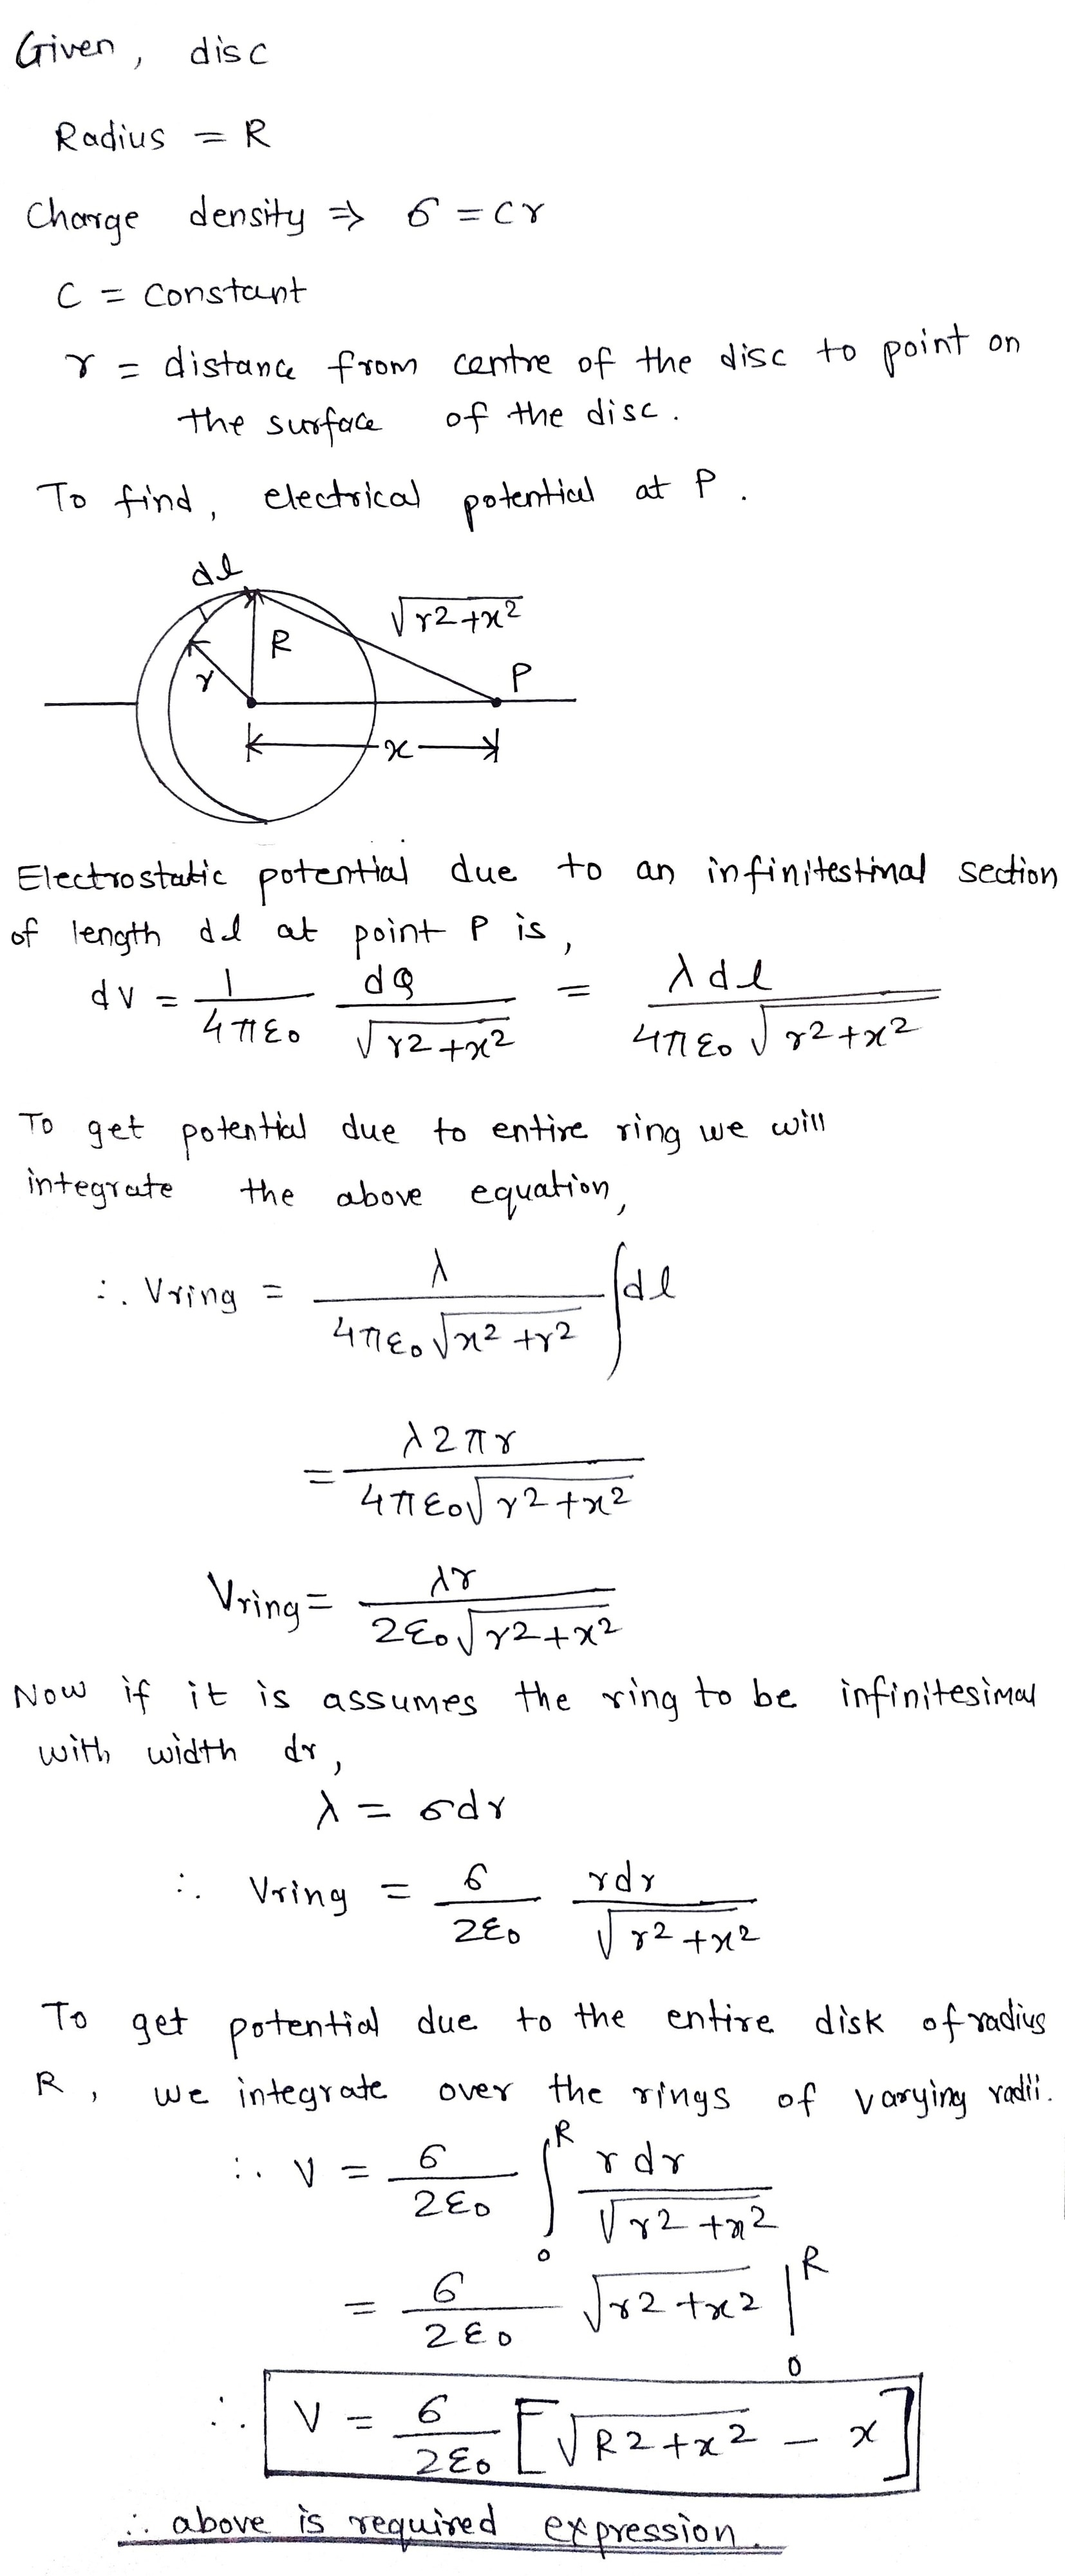 Given, disc
Radius = R
Charge density ⇒ σ = cr
C = constant
r = distance from centre of the disc to point on
the surface of the disc.
To find, electrical potential at P.
dl
√r2+x2
R
P
r
x
Electrostatic potential due to an infinitestimal section
of length dl at point P is,
dV = 1/4πε0 dQ/√r2+x2 = λdl/4πε0√r2+x2
To get potential due to entire ring we will
integrate the above equation,
∴ Vring = λ/4πε0√x2+r2 ∫dl
= λ2πr/4πε0√r2+x2
Vring = λr/2ε0√r2+x2
Now if it is assumes the ring to be infinitesimal
with width dr,
λ = σdr
∴ Vring = σ/2ε0 rdr/√r2+x2
To get potential due to the entire disk of radius
R, we integrate over the rings of varying radii.
∴ V = σ/2ε0 ∫0^R rdr/√r2+x2
= σ/2ε0 √r2+x2 |0^R
∴ V = σ/2ε0 [√R2+x2 − x]
∴ above is required expression.